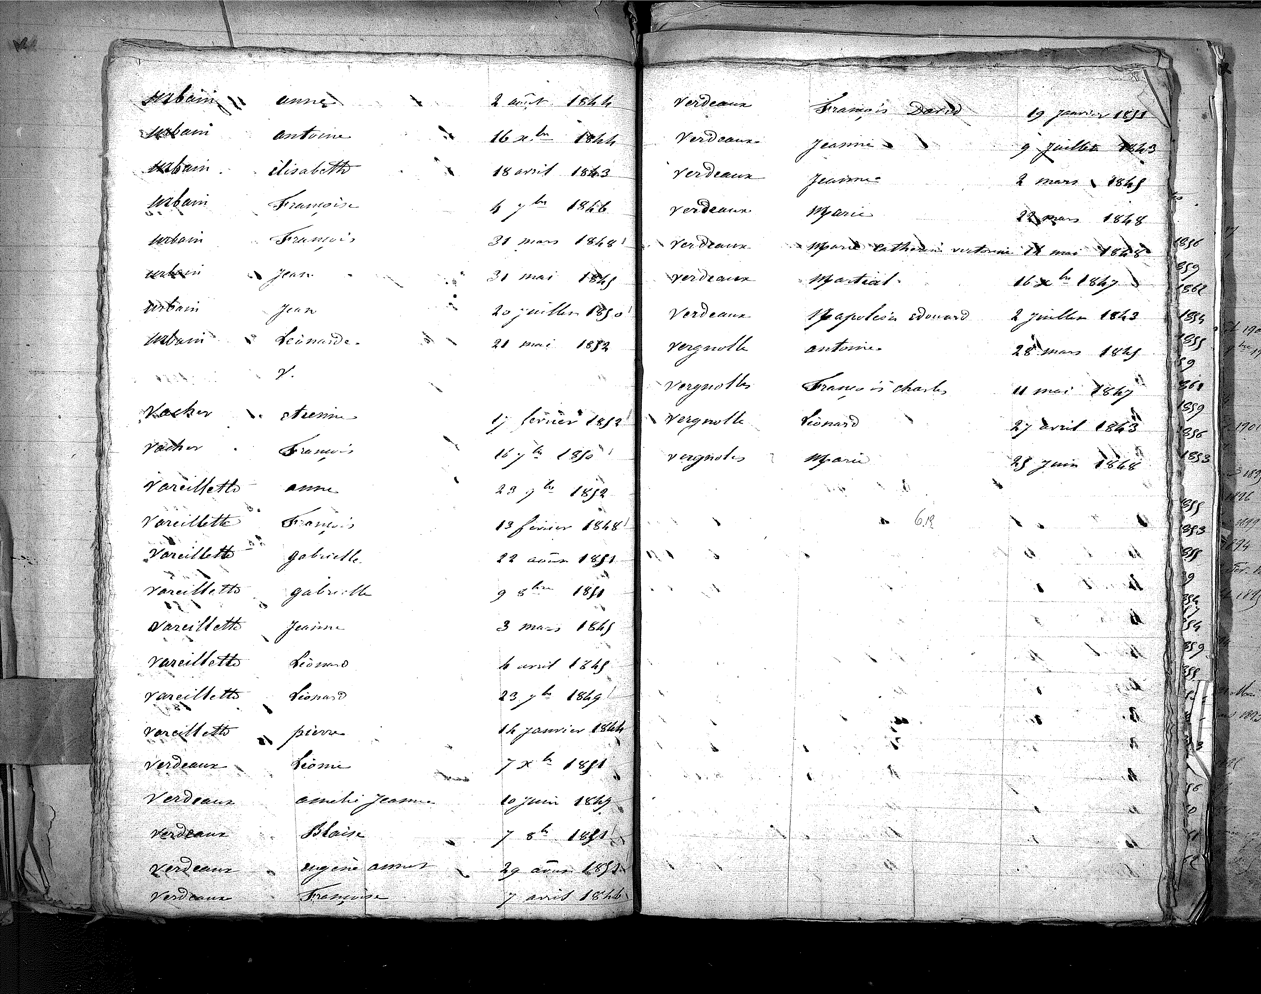 urbain anne 2 août 1844
urbain antoine 16 xbre 1844
urbain élisabeth 18 avril 1843
urbain Françoise 4 9bre 1846
urbain François 31 mars 1848
urbain Jean 31 mai 1845
urbain Jean 20 juillet 1850
urbain Léonarde 21 mai 1852
V.
Vacher étienne 17 février 1852
Vacher François 16 7bre 1850
Vareillette anne 23 9bre 1852
Vareillette François 13 février 1848
Vareillette gabrielle 22 août 1851
Vareillette gabrielle 9 8bre 1851
Vareillette Jeanne 3 mars 1845
Vareillette Léonard 4 avril 1845
Vareillette Léonard 23 7bre 1849
Vareillette pierre 14 janvier 1844
Verdeaux 7 xbre 1851
Verdeaux amélie Jeanne 10 juin 1849
Verdeaux Blaise 7 8bre 1851
Verdeaux eugène annet 29 août 1852
Verdeaux Françoise 7 avril 1846
Verdeaux François David 19 janvier 1851
Verdeaux Jeanne 9 juillet 1843
Verdeaux Jeanne 2 mars 1845
Verdeaux Marie 22 mars 1848
Verdeaux Marie Catherine victorine 11 mai 1848
Verdeaux Martial 16 xbre 1847
Verdeaux Napoléon édouard 2 juillet 1843
Vergnolle antoine 28 mars 1845
Vergnolles François charles 11 mai 1847
Vergnolle Léonard 27 avril 1843
Vergnoles Marie 25 juin 1848